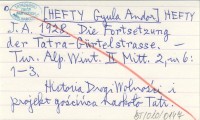 [HEFTY Gyula Andor] HEFTY
J. A. 1928. Die Fortsetzung
der Tatra-Gürtelstrasse. —
Tur. Alp. Wint. II Mitt. 2, nr 6:
1-3.
Historia Drogi Wolności i
projekt gościńca naokoło Tatr.